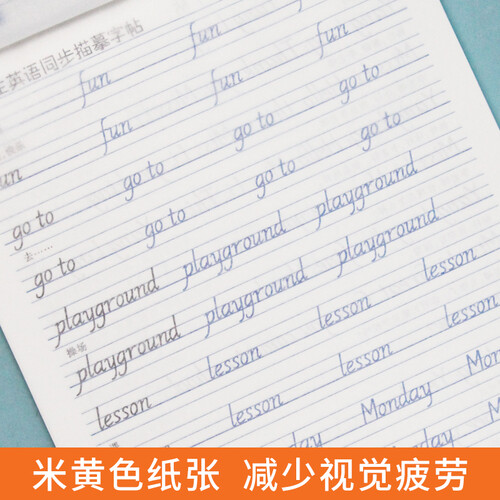 英语同步描摹字帖
fun fun fun
fun fun fun
go to go to go to go to
去……
go to go to go to go to
playground playground playground
操场
playground playground playground
lesson lesson lesson lesson
lesson lesson lesson
Monday Mo
米黄色纸张 减少视觉疲劳